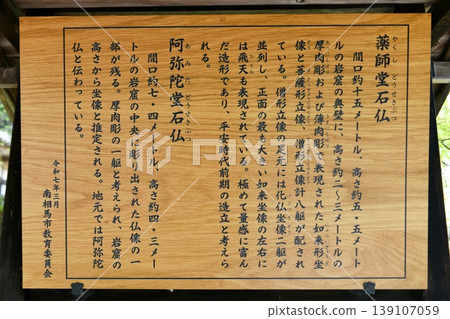 薬師堂石仏
やくしどうせきぶつ
間口約十五メートル、高さ約五・五メート
ルの岩窟の奥壁に、高さ約二～三メートルの
厚肉彫および薄肉彫で表現された如来形坐
像と菩薩形立像、僧形立像計八躯が配され
ている。僧形立像の足元には化仏坐像二躯が
並列し、正面の最も大きい如来坐像の左右に
は飛天も表現されている。極めて量感に富ん
だ造形であり、平安時代前期の造立と考えら
れる。
阿弥陀堂石仏
あみだどうせきぶつ
間口約七・四メートル、高さ約四・三メー
トルの岩窟の中央に彫り出された仏像の一
部が残る。厚肉彫の一躯と考えられ、岩窟の
高さから坐像と推定される。地元では阿弥陀
仏と伝わっている。
令和七年三月
南相馬市教育委員会
stock.adobe.com
139107059